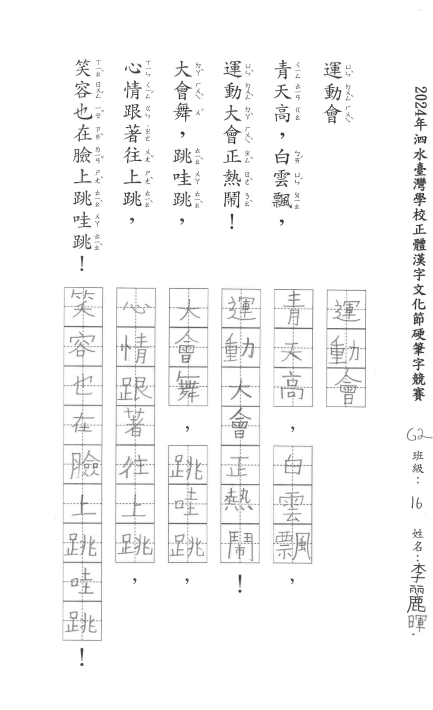 2024年泗水臺灣學校正體漢字文化節硬筆字競賽
G2班級：16 姓名：李麗暉
運動會
青天高，白雲飄，
運動大會正熱鬧！
大會舞，跳哇跳，
心情跟著往上跳，
笑容也在臉上跳哇跳！
運動會
青天高，白雲飄，
運動大會正熱鬧！
大會舞，跳哇跳，
心情跟著往上跳，
笑容也在臉上跳哇跳！